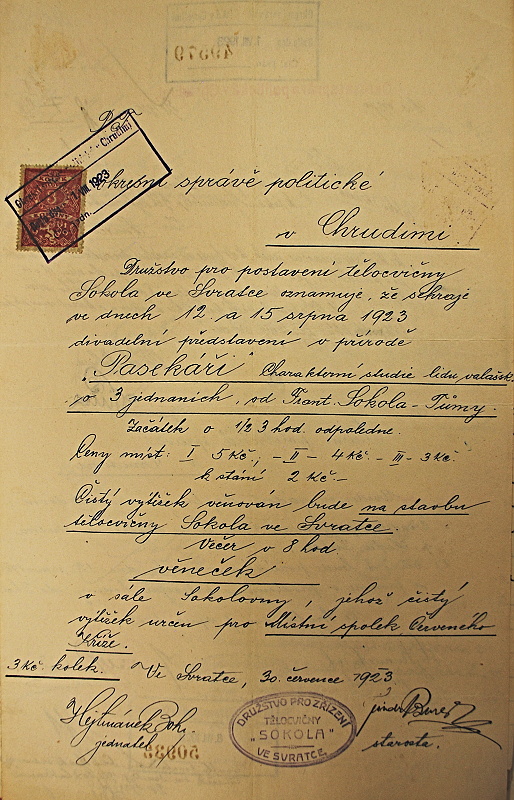 Okresní správě politické
v Chrudimi.
Družstvo pro postavení tělocvičny
Sokola ve Svratce oznamuje, že sehraje
ve dnech 12. a 15 srpna 1923
divadelní představení v přírodě
"Pasekáři" Charakterní studie lidu valašsk.
o 3 jednáních, od Frant. Sokola-Tůmy.
Začátek o 1/2 3 hod. odpoledne.
Ceny míst: I 5 Kč, - II - 4 Kč. - III - 3 Kč.
k stání 2 Kč.-
Čistý výtižek věnován bude na stavbu
tělocvičny Sokola ve Svratce.
Večer v 8 hod.
věneček
v sále Sokolovny, jehož čistý
výtižek určen pro Místní spolek Červeného
Kříže.
3 Kč kolek.
Ve Svratce, 30. července 1923
DRUŽSTVO PRO ZŘÍZENÍ
TĚLOCVIČNY
"SOKOLA"
VE SVRATCE.
jednatel
starosta.
49979
50938